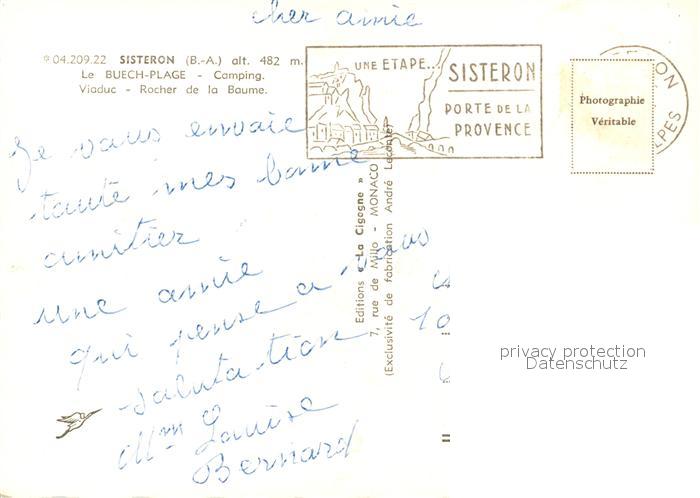 cher amie
04.209.22 SISTERON (B.-A.) alt. 482 m.
Le BUECH-PLAGE - Camping.
Viaduc - Rocher de la Baume.
UNE ETAPE...
SISTERON
PORTE DE LA
PROVENCE
ON
LPES
Photographie
Véritable
Je vous envoie
toute mes bonne
amitier
une amie
qui pense a vous
salutation
Mm Louise
Bernard
Editions « La Cigogne »
7, rue de Millo - MONACO
(Exclusivité de fabrication André Leconte)
10
privacy protection
Datenschutz